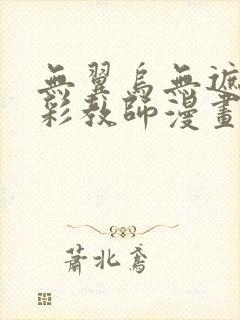 無翼烏無遮
彩教師漫畫
蕭北鳶